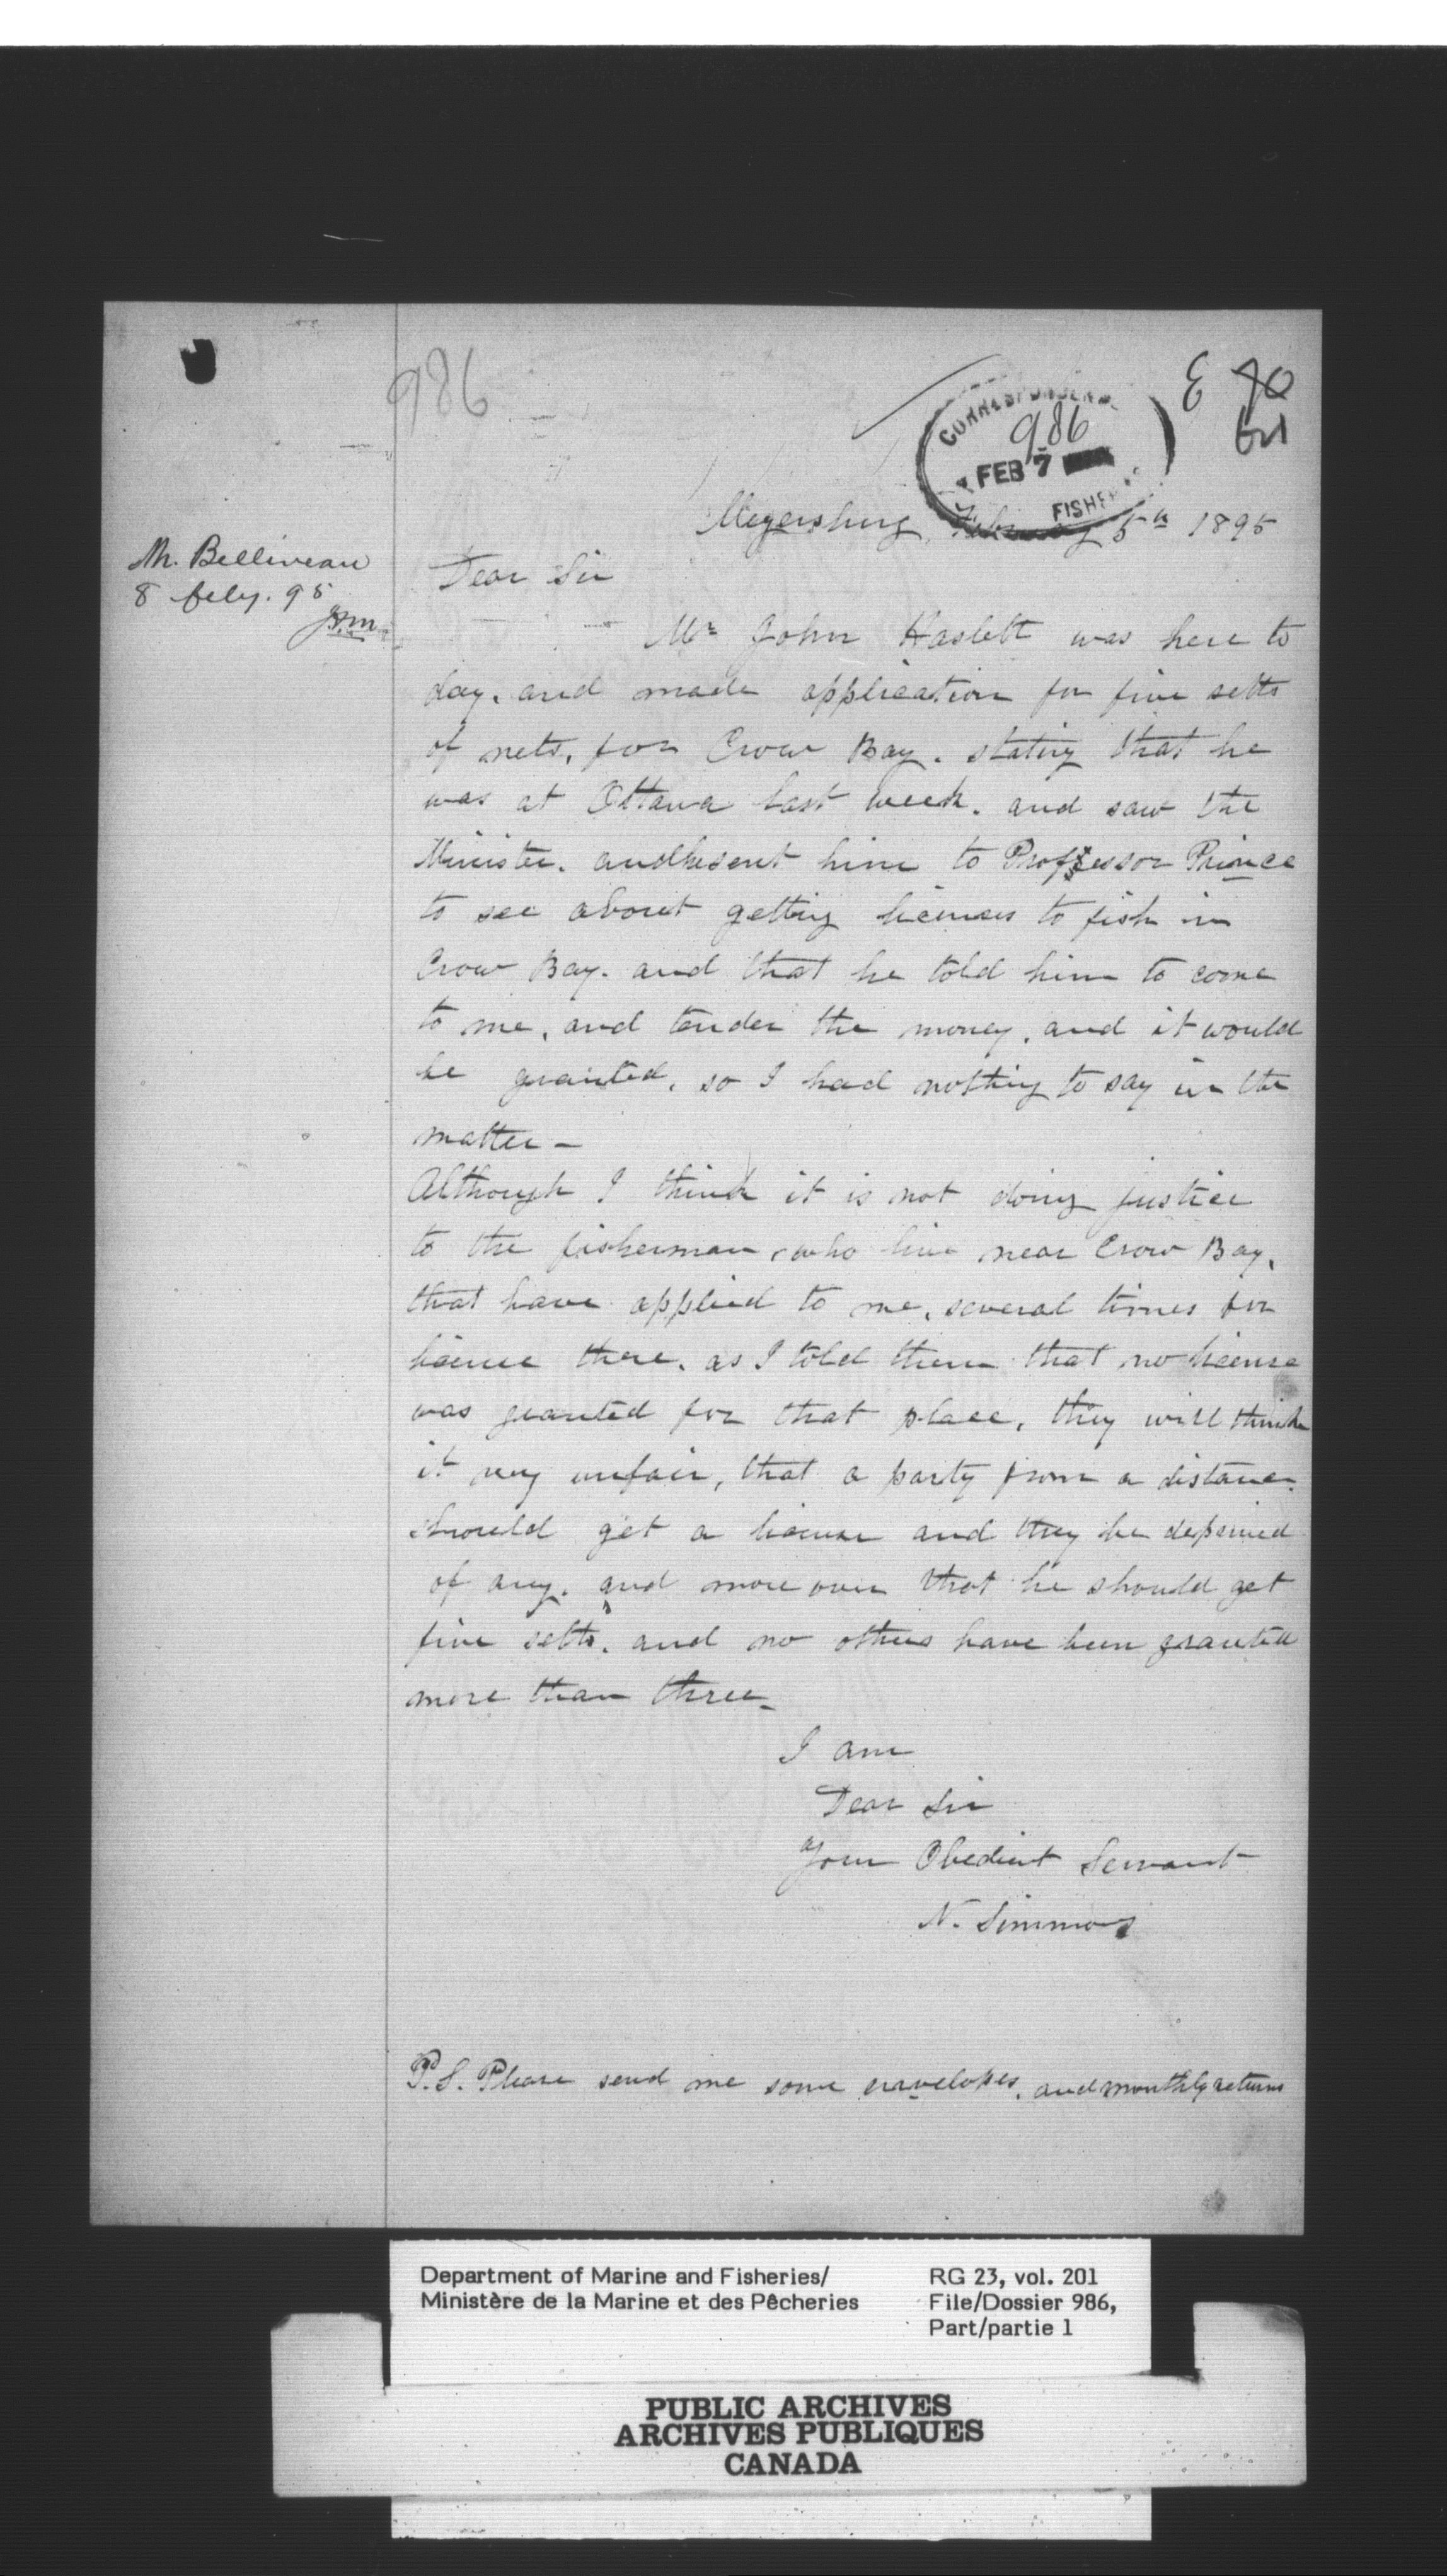 986
E 90
CORRESPONDENCE
986
FEB 7
FISHER
Meyersburg, February 5th 1895
M. Belliveau
8 feby. 95
Dear Sir
Mr John Haslett was here to
day. and made application for five setts
of nets, for Crow Bay. stating that he
was at Ottawa last week. and saw the
Minister. and he sent him to Professor Prince
to see about getting licenses to fish in
Crow Bay. and that he told him to come
to me, and tender the money, and it would
be granted, so I had nothing to say in the
matter -
Although I think it is not doing justice
to the fisherman, who live near Crow Bay,
that have applied to me, several times for
license there. as I told them that no license
was granted for that place, they will think
it very unfair, that a party from a distance
should get a license and they be deprived
of any. and more over that he should get
five setts. and no others have been granted
more than three -
I am
Dear Sir
Your Obedient Servant
N. Simmons
P.S. Please send me some envelopes, and monthly returns
Department of Marine and Fisheries/
Ministère de la Marine et des Pêcheries
RG 23, vol. 201
File/Dossier 986,
Part/partie 1
PUBLIC ARCHIVES
ARCHIVES PUBLIQUES
CANADA